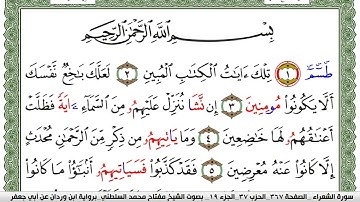 بِسْمِ اللَّهِ الرَّحْمَٰنِ الرَّحِيمِ
طسٓمٓ ١ تِلْكَ ءَايَٰتُ الْكِتَٰبِ الْمُبِينِ ٢ لَعَلَّكَ بَٰخِعٌ نَّفْسَكَ
أَلَّا يَكُونُوا مُومِنِينَ ٣ إِن نَّشَا نُنَزِّلْ عَلَيْهِمُۥ مِنَ السَّمَآءِ ءَايَةً فَظَلَّتْ
أَعْنَٰقُهُمُۥ لَهَا خَٰضِعِينَ ٤ وَمَا يَاتِيهِمُۥ مِن ذِكْرٍ مِّنَ الرَّحْمَٰنِ مُحْدَثٍ
إِلَّا كَانُوا عَنْهُ مُعْرِضِينَ ٥ فَقَدْ كَذَّبُوا فَسَيَاتِيهِمُۥ أَنۢبَٰٓؤُا مَا كَانُوا
سورة الشعراء _ الصفحة ٣٦٧_ الحزب ٣٧_ الجزء ١٩ _ بصوت الشيخ مفتاح محمد السلطني _برواية ابن وردان عن أبي جعفر